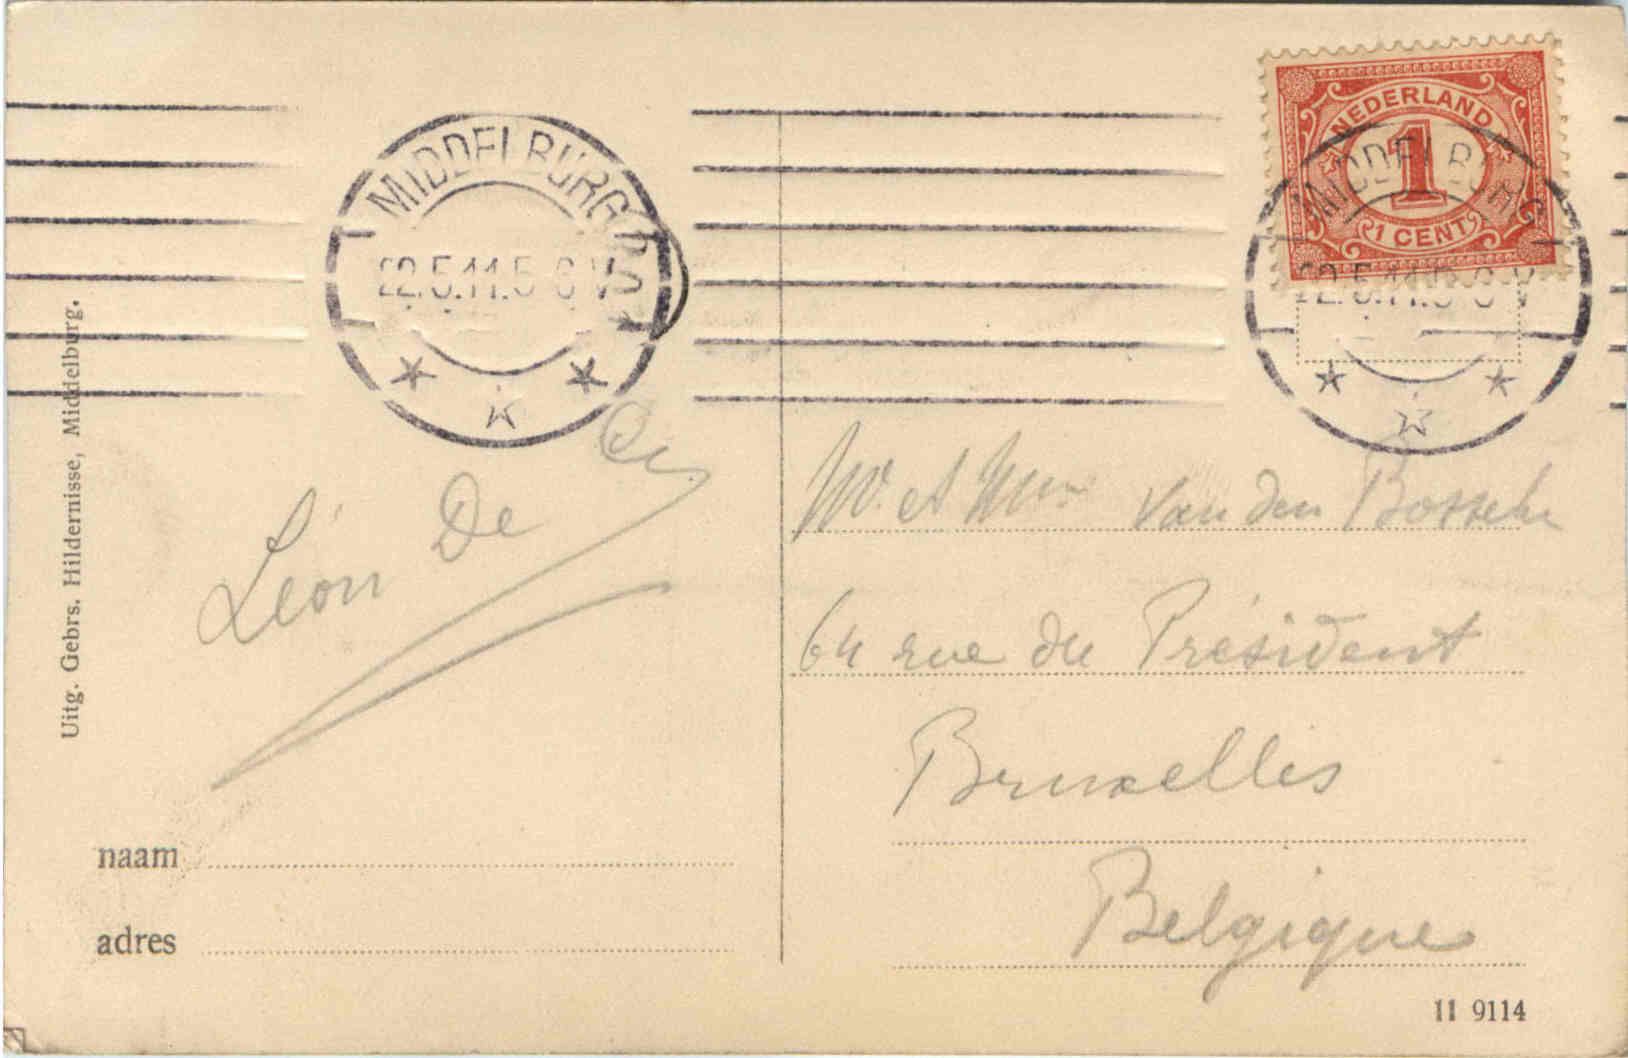 NEDERLAND
1
1 CENT
MIDDELBURG
22.5.11.5-6V
MIDDELBURG
22.5.11.5-6V
Uitg. Gebrs. Hildernisse, Middelburg.
Léon De
M. et Mme Van den Bossche
64 rue du Président
Bruxelles
Belgique
naam
adres
11 9114